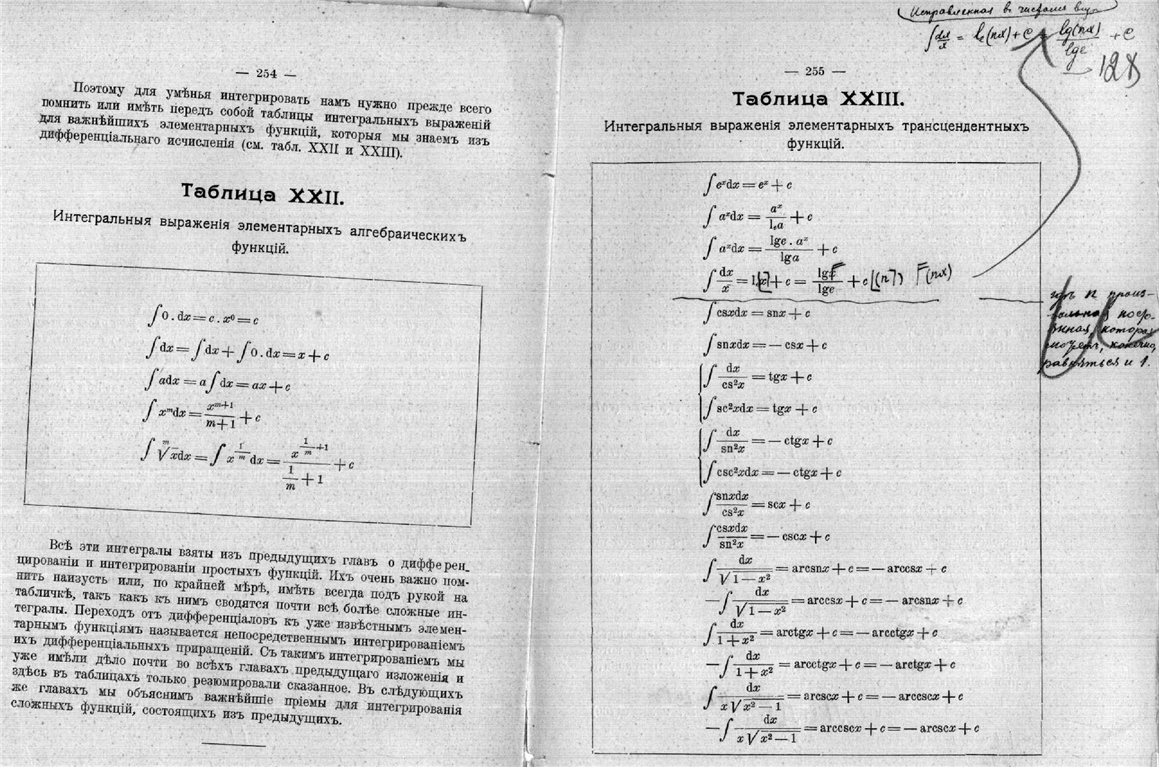 — 254 —
Поэтому для умѣнья интегрировать намъ нужно прежде всего
помнить или имѣть передъ собой таблицы интегральныхъ выраженій
для важнѣйшихъ элементарныхъ функцій, которыя мы знаемъ изъ
дифференціальнаго исчисленія (см. табл. XXII и XXIII).
Таблица XXII.
Интегральныя выраженія элементарныхъ алгебраическихъ
функцій.
∫ 0 . dx = c . x⁰ = c
∫ dx = ∫ dx + ∫ 0 . dx = x + c
∫ adx = a ∫ dx = ax + c
∫ xᵐdx = xᵐ⁺¹/(m+1) + c
∫ ᵐ√x dx = ∫ x^(1/m) dx = x^(1/m + 1)/(1/m + 1) + c
Всѣ эти интегралы взяты изъ предыдущихъ главъ о дифферен-
цированіи и интегрированіи простыхъ функцій. Ихъ очень важно пом-
нить наизусть или, по крайней мѣрѣ, имѣть всегда подъ рукой на
табличкѣ, такъ какъ къ нимъ сводятся почти всѣ болѣе сложные ин-
тегралы. Переходъ отъ дифференціаловъ къ уже извѣстнымъ элемен-
тарнымъ функціямъ называется непосредственнымъ интегрированіемъ
ихъ дифференціальныхъ приращеній. Съ такимъ интегрированіемъ мы
уже имѣли дѣло почти во всѣхъ главахъ предыдущаго изложенія и
здѣсь въ таблицахъ только резюмировали сказанное. Въ слѣдующихъ
же главахъ мы объяснимъ важнѣйшіе пріемы для интегрированія
сложныхъ функцій, состоящихъ изъ предыдущихъ.
Исправленная въ
∫ dx/x = lₑ(nx) + c = lg(nx)/lge + c
128
— 255 —
Таблица XXIII.
Интегральныя выраженія элементарныхъ трансцендентныхъ
функцій.
∫ eˣdx = eˣ + c
∫ aˣdx = aˣ/lₑa + c
∫ aˣdx = lge . aˣ/lga + c
∫ dx/x = lₑx + c = lgx/lge + c (n) F(nx)
∫ csxdx = snx + c
∫ snxdx = — csx + c
∫ dx/cs²x = tgx + c
∫ sc²xdx = tgx + c
∫ dx/sn²x = — ctgx + c
∫ csc²xdx = — ctgx + c
∫ snxdx/cs²x = scx + c
∫ csxdx/sn²x = — cscx + c
∫ dx/√(1 — x²) = arcsnx + c = — arccsx + c
— ∫ dx/√(1 — x²) = arccsx + c = — arcsnx + c
∫ dx/(1 + x²) = arctgx + c = — arcctgx + c
— ∫ dx/(1 + x²) = arcctgx + c = — arctgx + c
∫ dx/(x√(x² — 1)) = arcscx + c = — arccscx + c
— ∫ dx/(x√(x² — 1)) = arccscx + c = — arcscx + c
гдѣ n произ-
вольная посто-
янная, которая
можетъ, конечно,
равняться и 1.